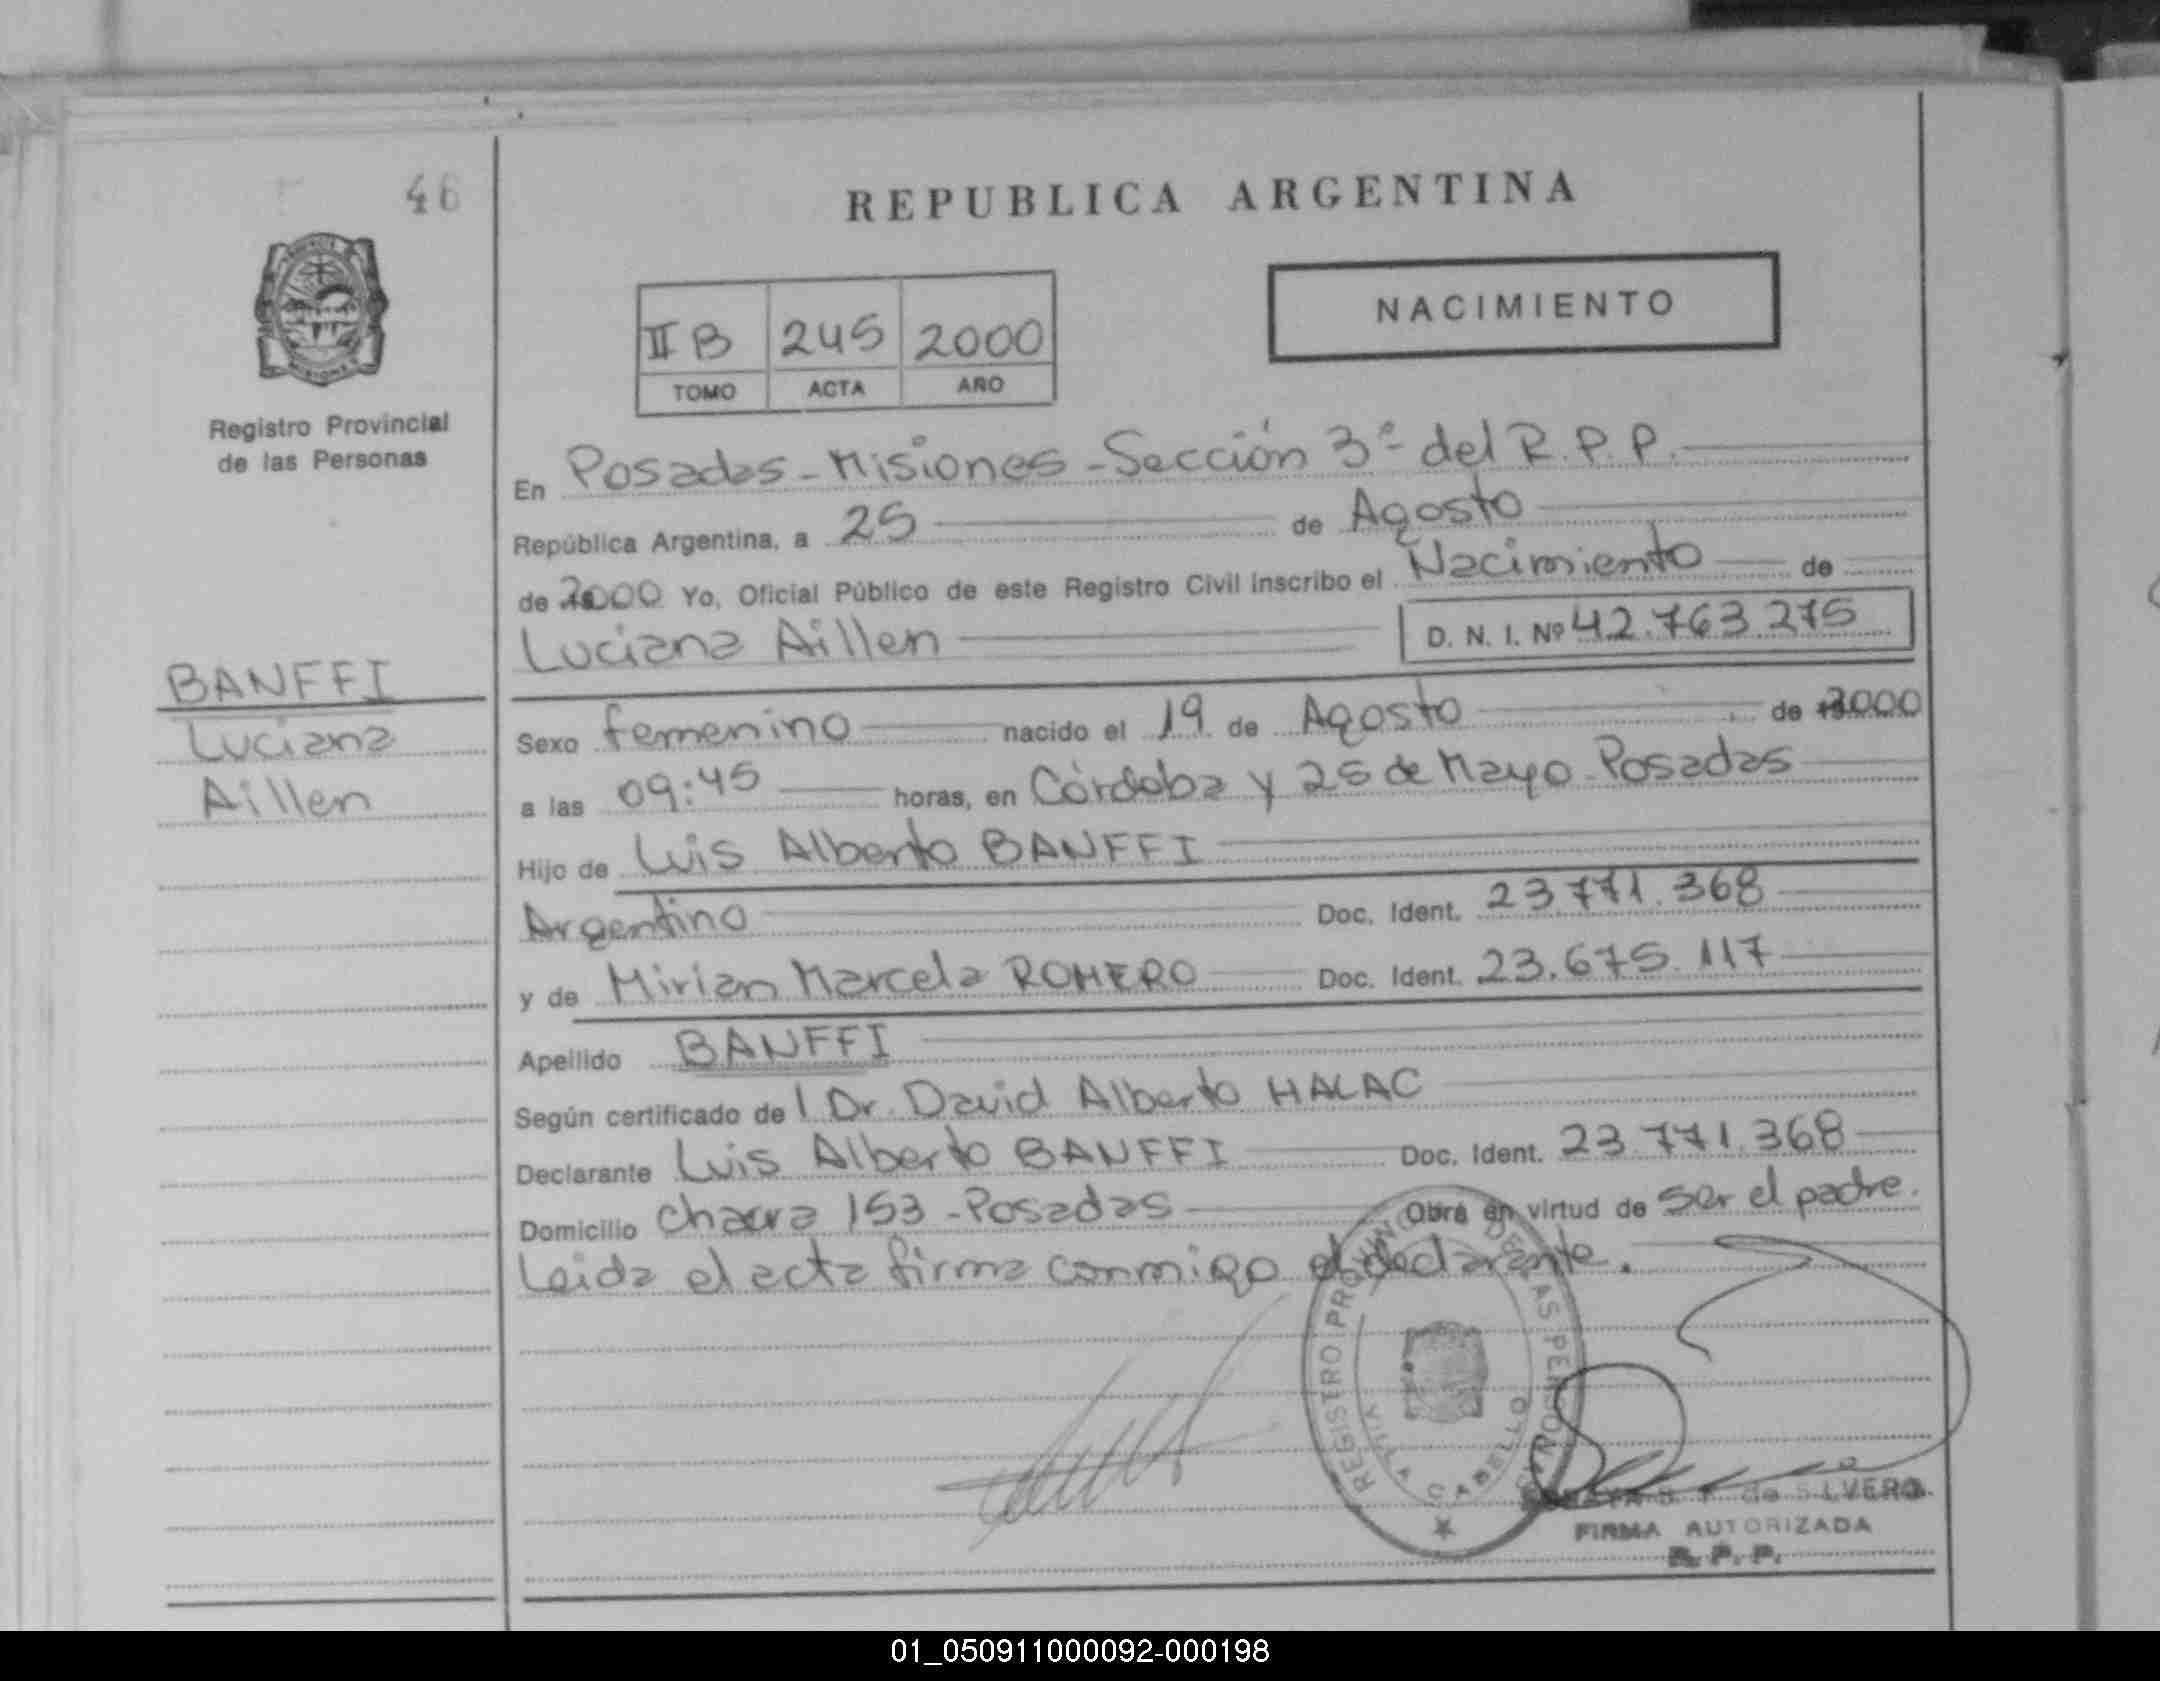 46
REPUBLICA ARGENTINA
NACIMIENTO
II B 245 2000
TOMO ACTA AÑO
Registro Provincial
de las Personas
En Posadas - Misiones - Sección 3ª del R.P.P.
República Argentina, a 25 de Agosto
de 2000 Yo, Oficial Público de este Registro Civil inscribo el Nacimiento de
Luciana Aillen D. N. I. Nº 42.763.275
BANFFI
Luciana
Aillen
Sexo femenino nacido el 19 de Agosto de 2000
a las 09:45 horas, en Córdoba y 25 de Mayo - Posadas
Hijo de Luis Alberto BANFFI
Argentino Doc. Ident. 23.771.368
y de Mirian Marcela ROMERO Doc. Ident. 23.675.117
Apellido BANFFI
Según certificado de l Dr. David Alberto HALAC
Declarante Luis Alberto BANFFI Doc. Ident. 23.771.368
Domicilio Chacra 153 - Posadas Obra en virtud de ser el padre.
Leida el acta firma conmigo el declarante.
REGISTRO PROVINCIAL DE LAS PERSONAS
VILLA CABELLO
de SILVERO
FIRMA AUTORIZADA
R. P. P.
01_050911000092-000198